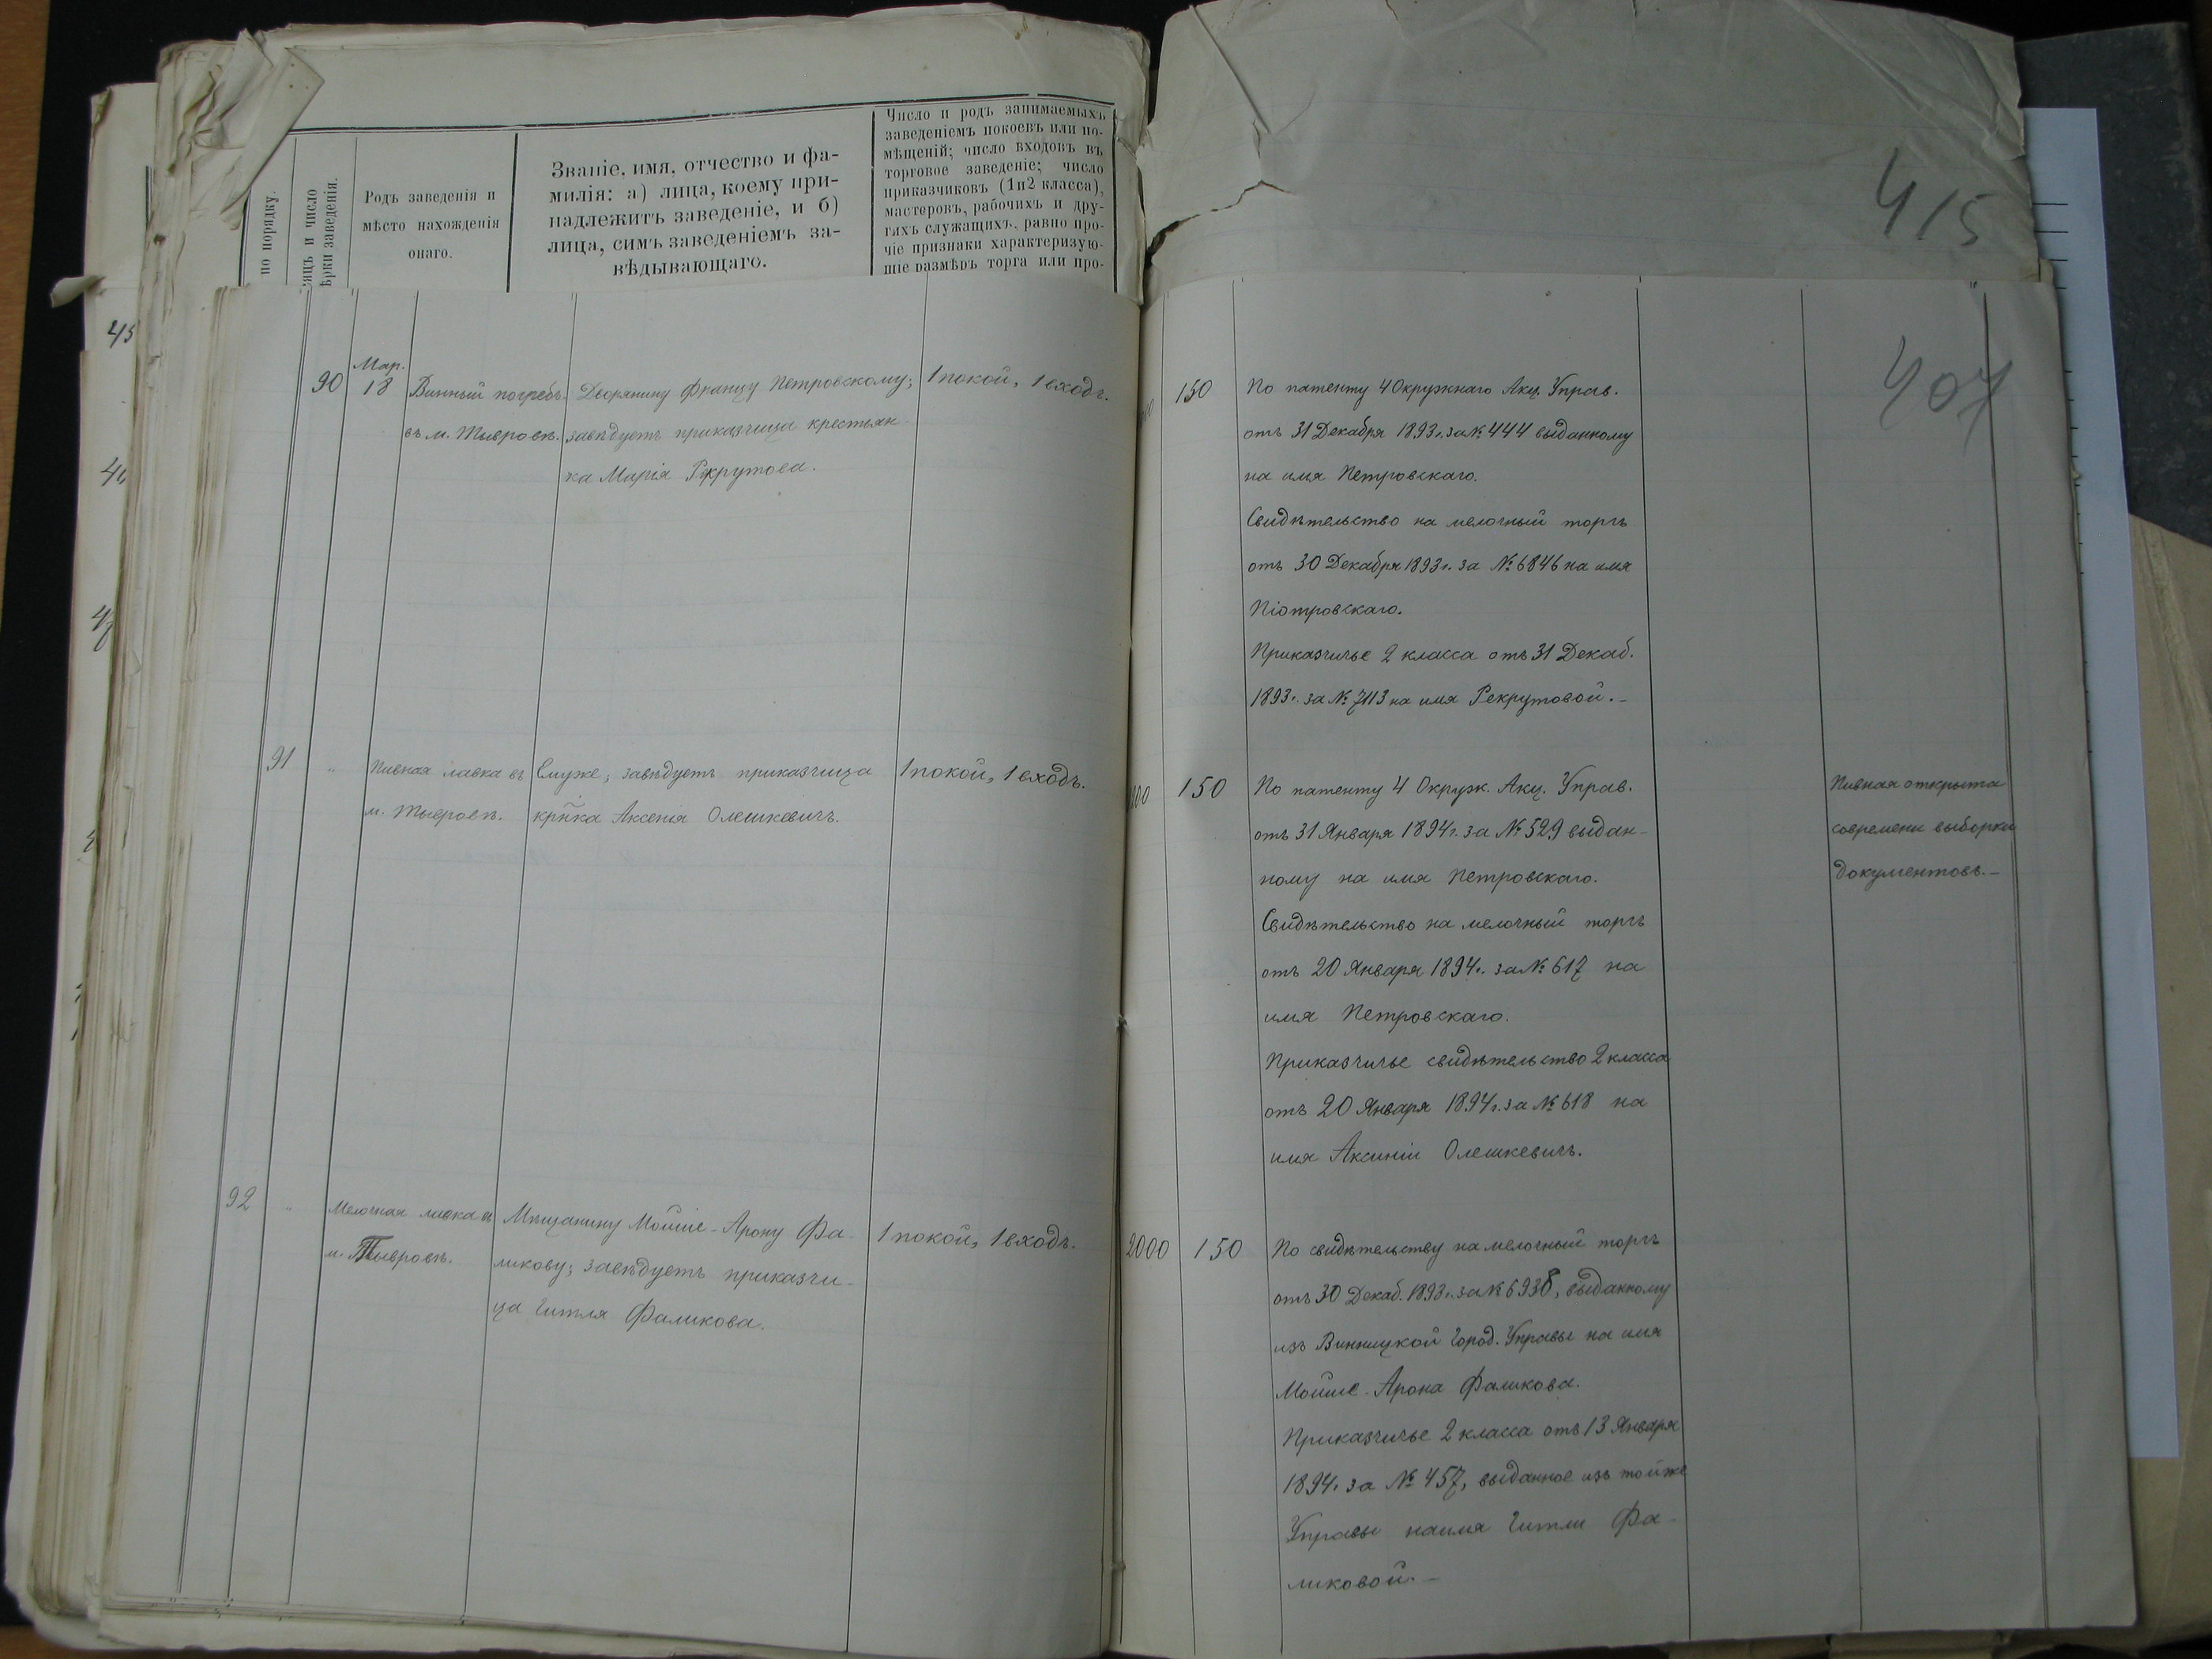 по порядку.
сяцъ и число
ѣрки заведенія.
Родъ заведенія и
мѣсто нахожденія
онаго.
Званіе, имя, отчество и фа-
милія: а) лица, коему при-
надлежитъ заведеніе, и б)
лица, симъ заведеніемъ за-
вѣдывающаго.
Число и родъ занимаемыхъ
заведеніемъ покоевъ или по-
мѣщеній; число входовъ въ
торговое заведеніе; число
приказчиковъ (1и2 класса),
мастеровъ, рабочихъ и дру-
гихъ служащихъ, равно про-
чіе признаки характеризую-
щіе размѣръ торга или про-
415
407
45
90
Мар.
18
Винный погребъ
въ м. Тывровѣ.
Дворянину Францу Петровскому;
завѣдуетъ приказчица крестьян-
ка Марія Рекрутова.
1 покой, 1 входъ.
150
По патенту 4 Окружнаго Акц. Управ.
отъ 31 Декабря 1893г. за № 444 выданному
на имя Петровскаго.
Свидѣтельство на мелочный торгъ
отъ 30 Декабря 1893г. за № 6846 на имя
Піотровскаго.
Приказчичье 2 класса отъ 31 Декаб.
1893г. за № 7113 на имя Рекрутовой.-
91
"
Пивная лавка въ
м. Тывровѣ.
Ему же; завѣдуетъ приказчица
крн̃ка Аксенія Олешкевичъ.
1 покой, 1 входъ.
150
По патенту 4 Окруж. Акц. Управ.
отъ 31 Января 1894г. за № 529 выдан-
ному на имя Петровскаго.
Свидѣтельство на мелочный торгъ
отъ 20 Января 1894г. за № 617 на
имя Петровскаго.
Приказчичье свидѣтельство 2 класса
отъ 20 Января 1894г. за № 618 на
имя Аксиніи Олешкевичъ.
Пивная открыта
современи выборки
документовъ.-
92
"
Мелочная лавка въ
м. Тывровѣ.
Мѣщанину Мойше-Арону Фа-
ликову; завѣдуетъ приказчи-
ца Гитля Фаликова.
1 покой, 1 входъ.
2000
150
По свидѣтельству на мелочный торгъ
отъ 30 Декаб. 1893г. за № 6936, выданному
изъ Винницкой Город. Управы на имя
Мойше-Арона Фаликова.
Приказчичье 2 класса отъ 13 Января
1894г. за № 457, выданное изъ тойже
Управы наимя Гитли Фа-
ликовой.-